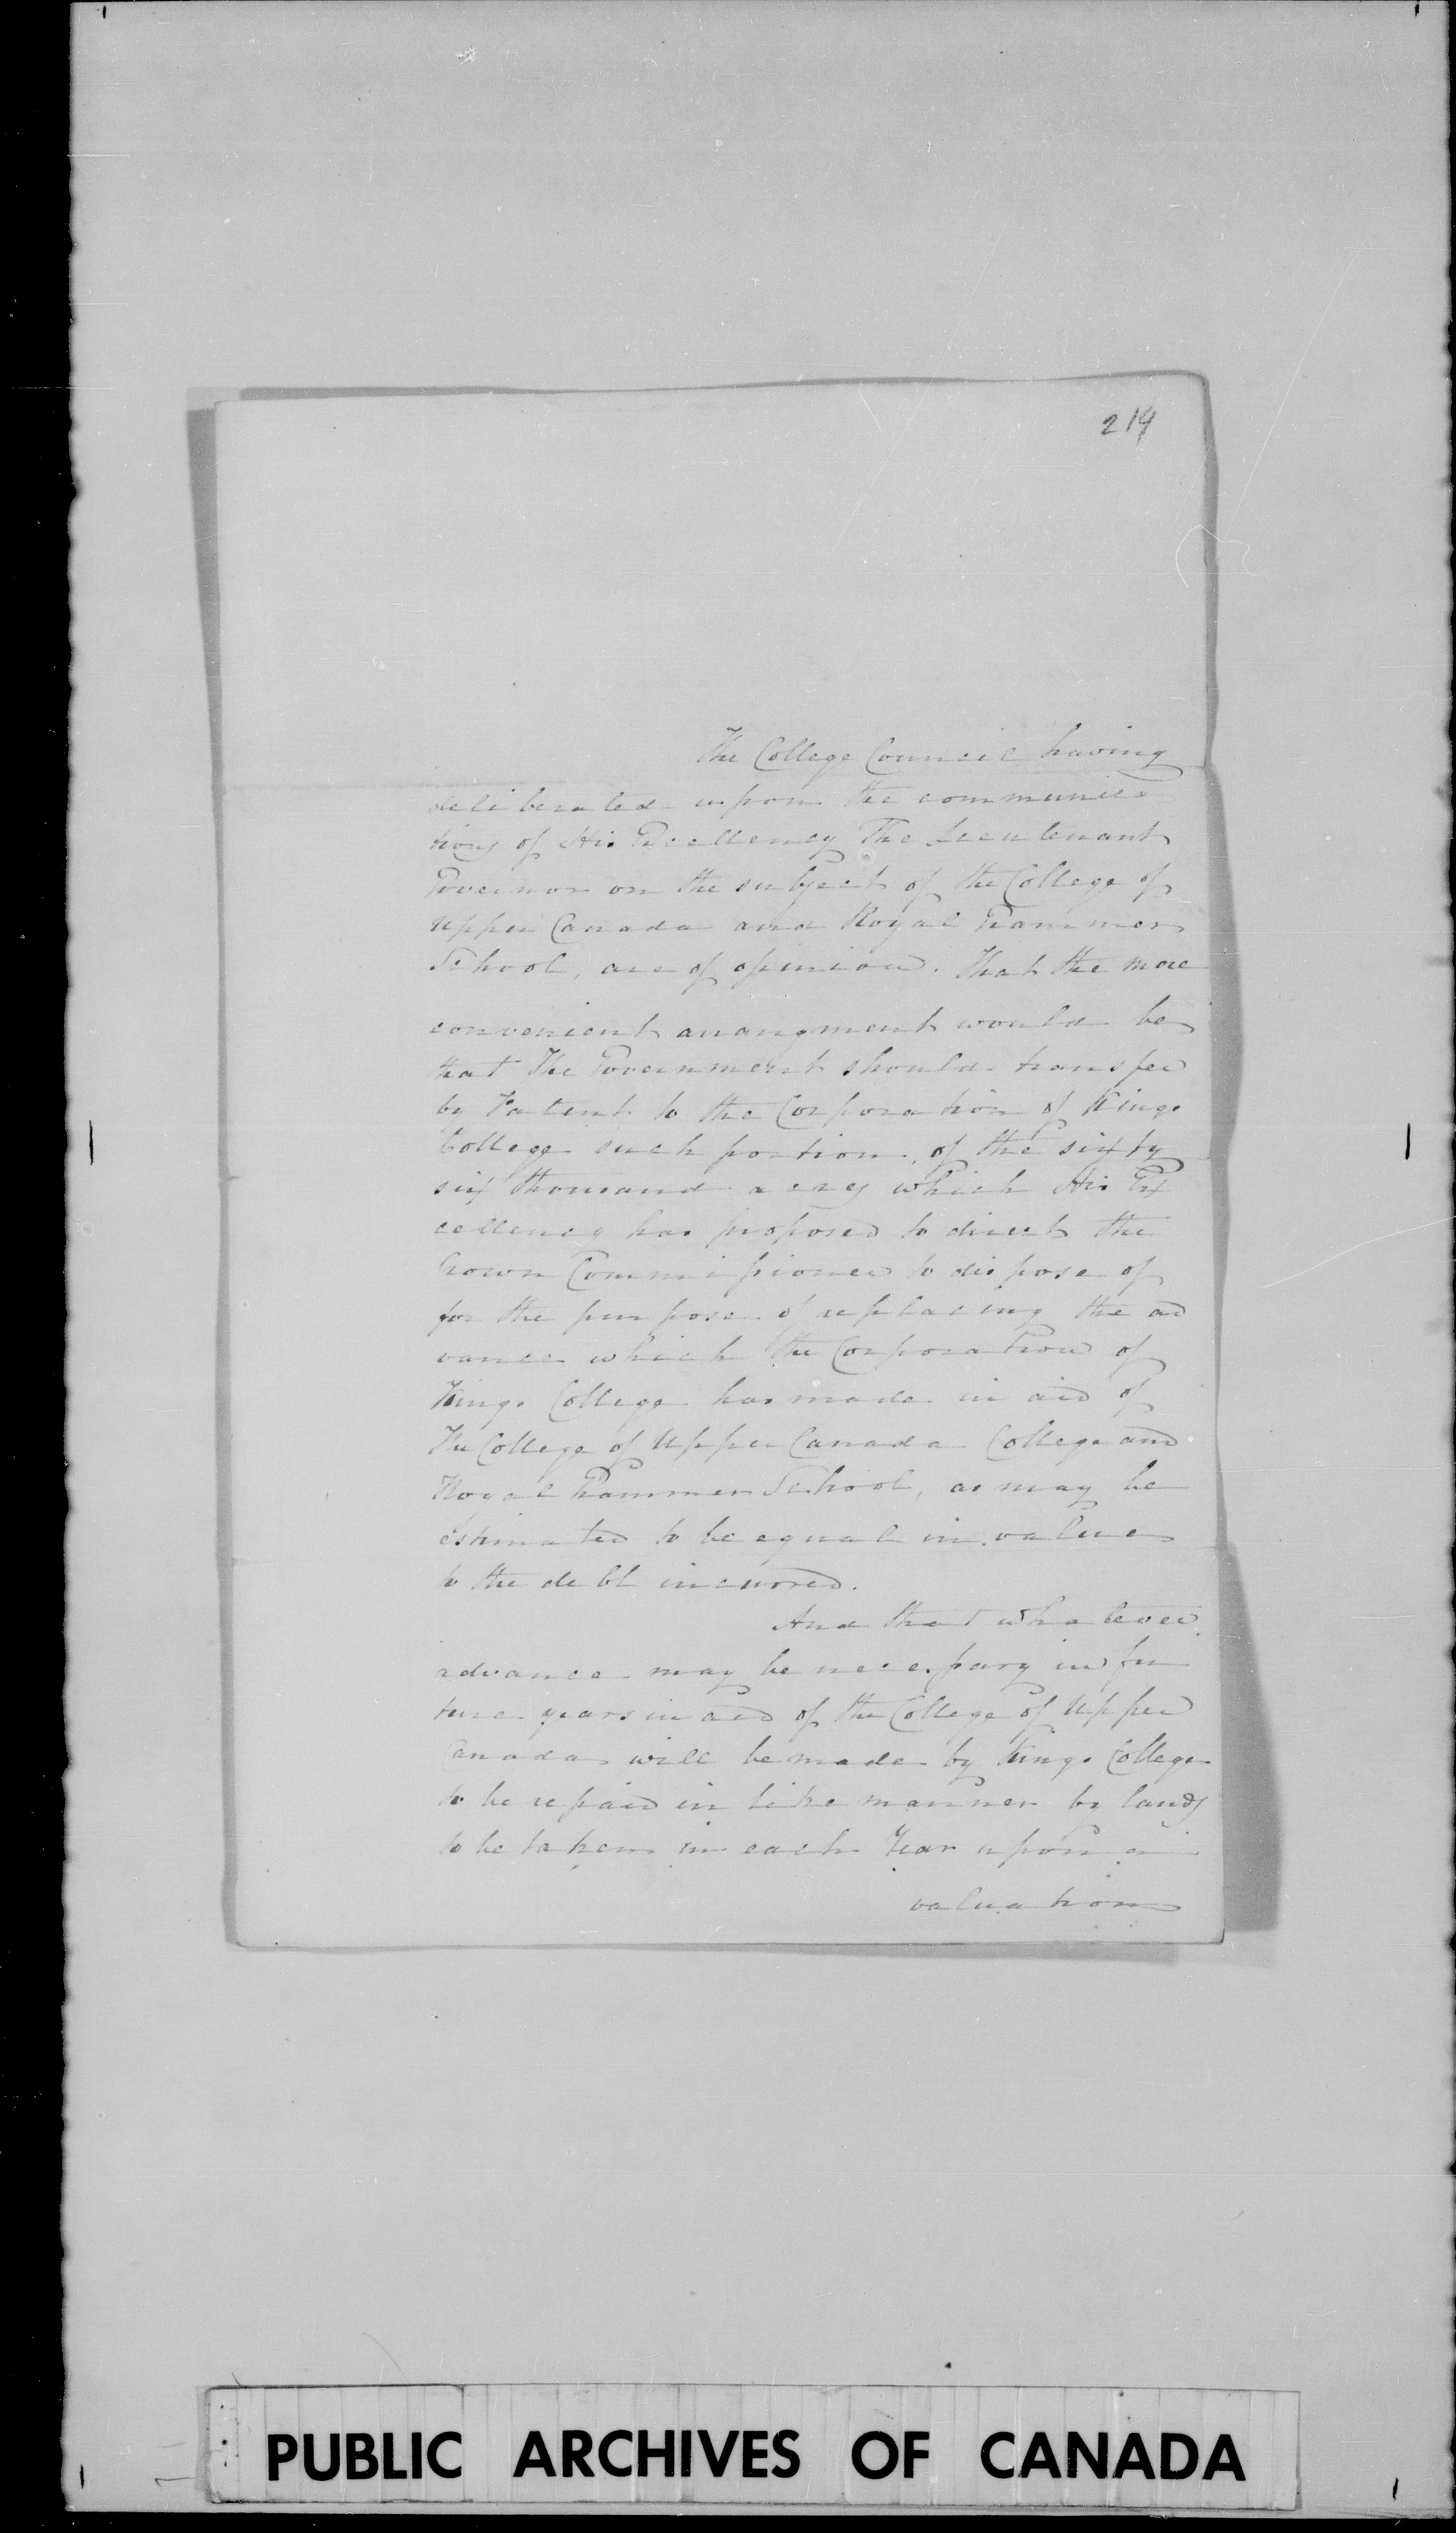 219
The College Council having
deliberated upon the communica
tions of His Excellency The Lieutenant
Governor on the subject of the College of
Upper Canada and Royal Grammer
School, are of opinion. That the more
convenient arrangment would be
that The Government should transfer
by Patent to the Corporation of Kings
College such portion, of the sixty
six thousand acres which His Ex
cellency has proposed to direct the
Crown Commissioner to dispose of
for the purpose of replacing the ad
vance which the Corporation of
Kings College has made in aid of
The College of Upper Canada College and
Royal Grammer School, as may be
estimated to be equal in value
to the debt incurred.
And that whatever
advance may be necessary in fu
ture years in aid of the College of Upper
Canada will be made by Kings College
to be repaid in like manner by lands
to be taken in each Year upon a
valuation
PUBLIC ARCHIVES OF CANADA